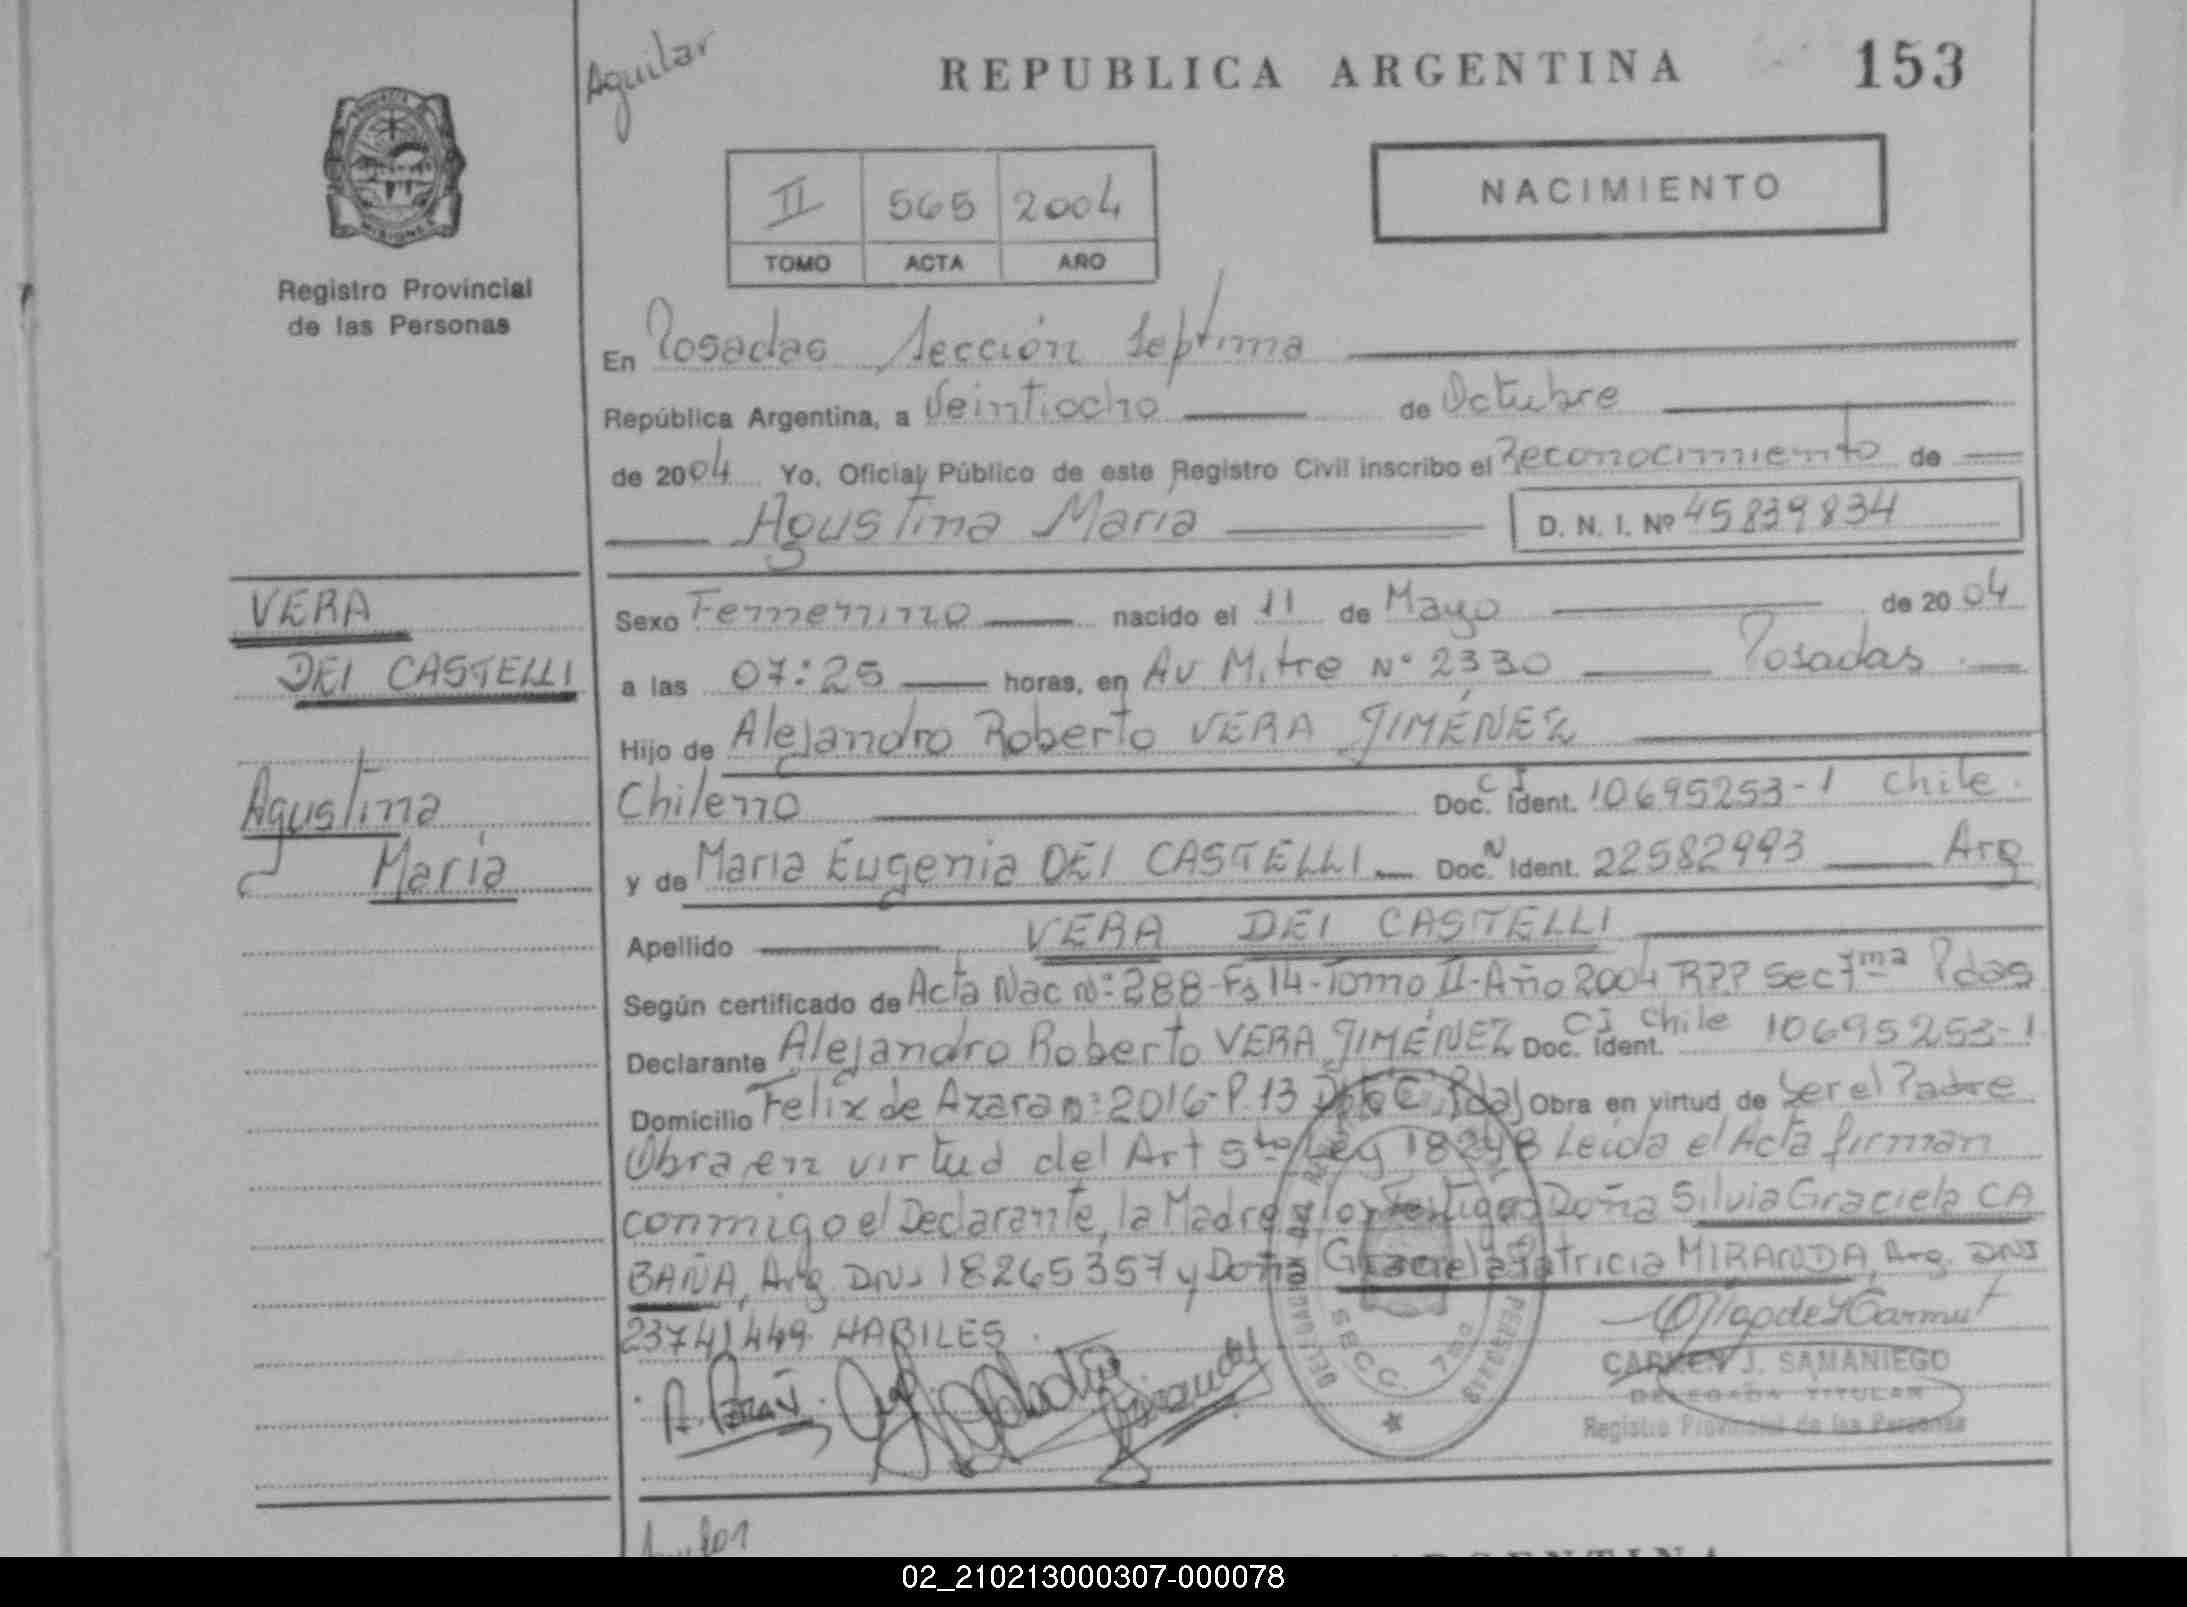 Aguilar
REPUBLICA ARGENTINA 153
II 565 2004
TOMO ACTA AÑO
NACIMIENTO
Registro Provincial
de las Personas
En Posadas Sección Septima
República Argentina, a Veintiocho de Octubre
de 2004 Yo, Oficial Público de este Registro Civil inscribo el Reconocimiento de
Agustina Maria D. N. I. Nº 45839834
VERA
DEI CASTELLI
Agustina
María
Sexo Femenino nacido el 11 de Mayo de 2004
a las 07:25 horas, en Av Mitre Nº 2330 Posadas
Hijo de Alejandro Roberto VERA JIMÉNEZ
Chileno Doc. Ident. C I 10695253-1 Chile.
y de Maria Eugenia DEI CASTELLI Doc. N Ident. 22582993 Arg
Apellido VERA DEI CASTELLI
Según certificado de Acta Nac Nº 288-Fs 14-Tomo II-Año 2004 RPP Sec 7ma Pdas
Declarante Alejandro Roberto VERA JIMÉNEZ Doc. Ident. CI Chile 10695253-1
Domicilio Felix de Azara nº 2016-P.13 Dpto C. Pdas Obra en virtud de Ser el Padre
Obra en virtud del Art 5to Ley 18248 Leida el Acta firman
conmigo el Declarante, la Madre y los Testigos Doña Silvia Graciela CA
BAÑA, Arg. DNI 18265357 y Doña Graciela Patricia MIRANDA, Arg. DNI
23741449. HABILES.
SECC. 7ma
CARMEN J. SAMANIEGO
DELEGADA TITULAR
Registro Provincial de las Personas
ARGENTINA
02_210213000307-000078